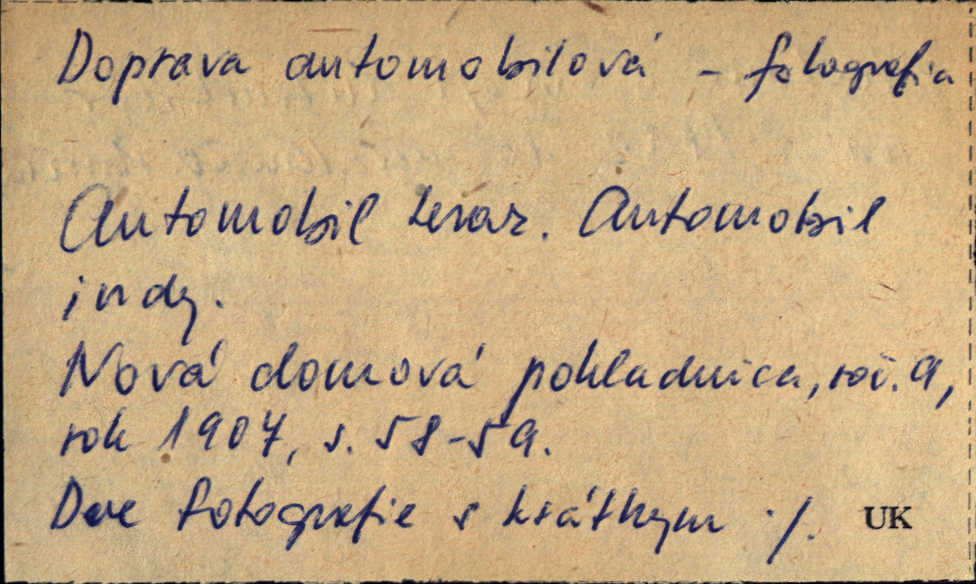 Doprava automobilová - fotografia
Automobil teraz. Automobil
indy.
Nová domová pokladnica, roč. 9,
rok 1907, s. 58-59.
Dve fotografie s krátkym ./. UK